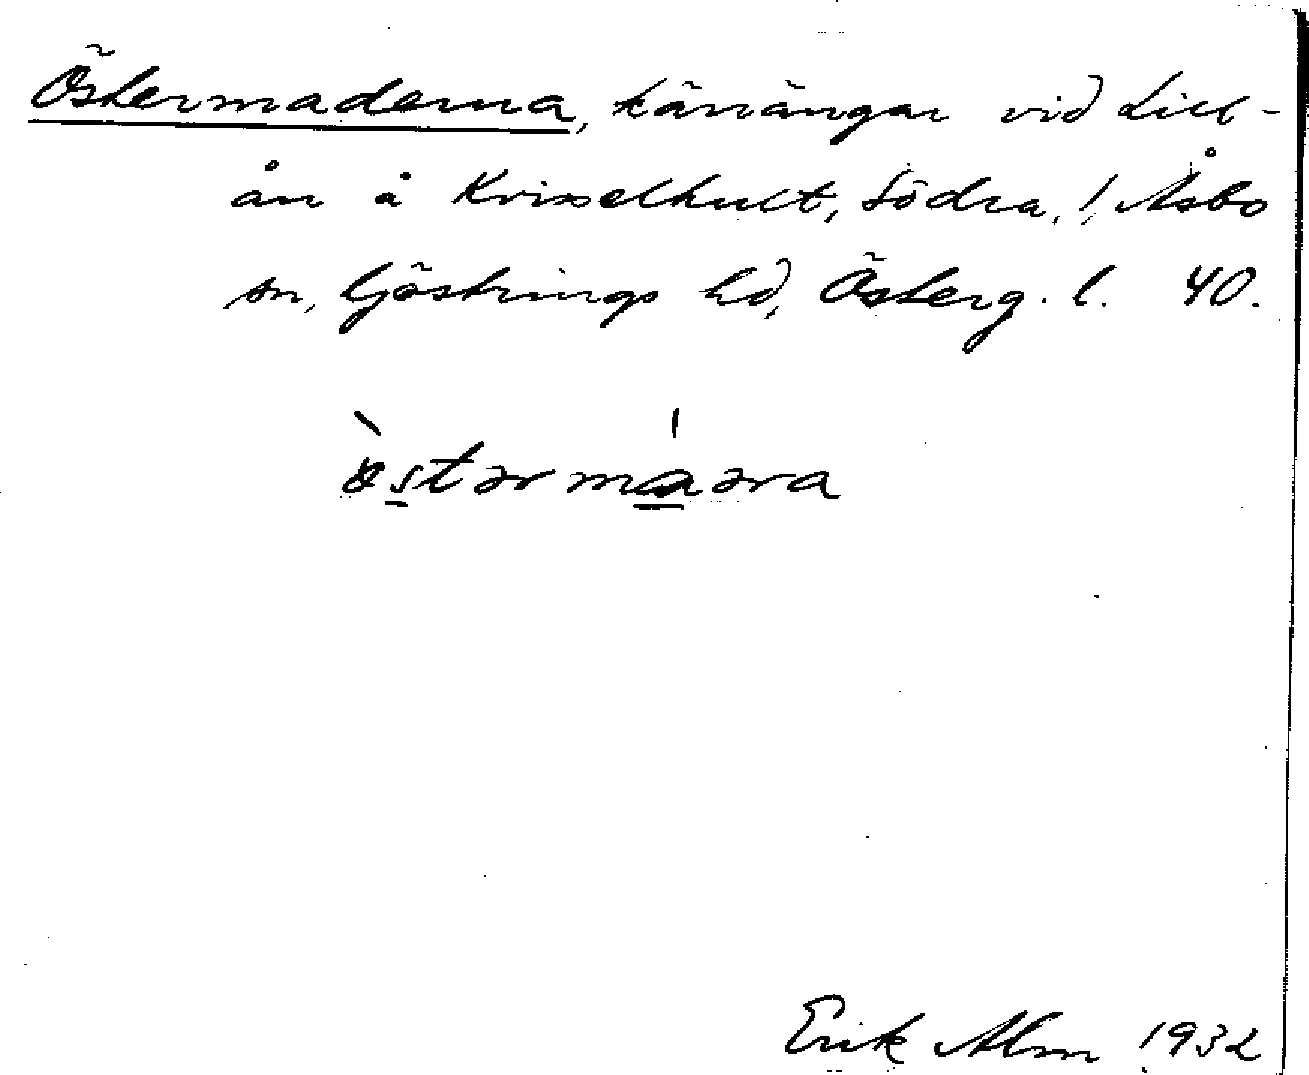 Östermaderna, kärrängar vid Lill-
ån å Krisselkult, Södra, !, Åsbo
sn, Göstrings hd, Österg. l. 40.
østərmaəra
Erik Alm 1932